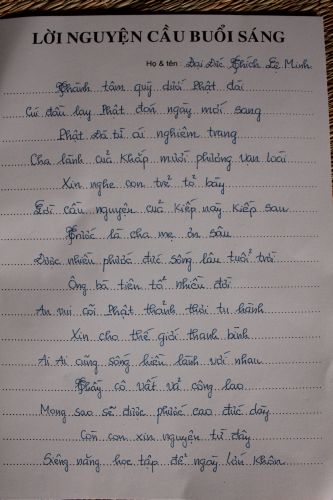 LỜI NGUYỆN CẦU BUỔI SÁNG
Họ & tên : Đại Đức Thích Lệ Minh
Thành tâm quỳ dưới Phật đài
Cúi đầu lạy Phật đón ngày mới sang
Phật Đà từ ái nghiêm trang
Cha lành của khắp mười phương vạn loài
Xin nghe con trẻ tỏ bày
Lời cầu nguyện của kiếp này kiếp sau
Trước là cha mẹ ơn sâu
Được nhiều phước đức sống lâu tuổi trời
Ông bà tiên tổ nhiều đời
An vui cõi Phật thảnh thơi tu hành
Xin cho thế giới thanh bình
Ai Ai cũng sống hiền lành với nhau
Thầy cô vất vả công lao
Mong sao sẽ được phước cao đức dày
Còn con xin nguyện từ đây
Siêng năng học tập để ngày lớn khôn